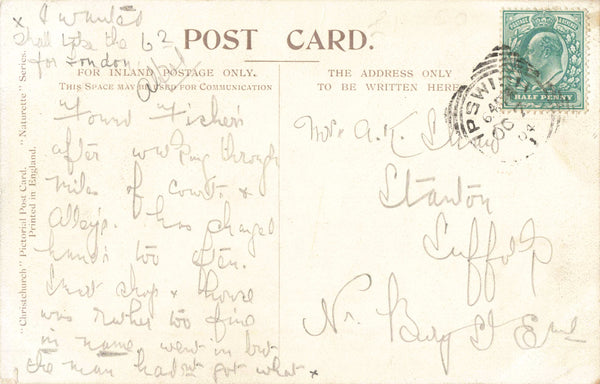 x I wanted
shall take the 62
for London
POST CARD.
FOR INLAND POSTAGE ONLY.
THIS SPACE MAY BE USED FOR COMMUNICATION
THE ADDRESS ONLY
TO BE WRITTEN HERE
"Christchurch" Pictorial Post Card. "Naturette" Series.
Printed in England.
POSTAGE REVENUE
HALF PENNY
IPSWICH
OC
04
Found Fisher's
after walking through
miles of courts &
alleys. has changed
hands too often.
Smart shop & those
was rather too fine
in name, went in but
the man hadn't got what x
Mrs A. K.
Stanton
Suffolk
Nr. Bury St Ed